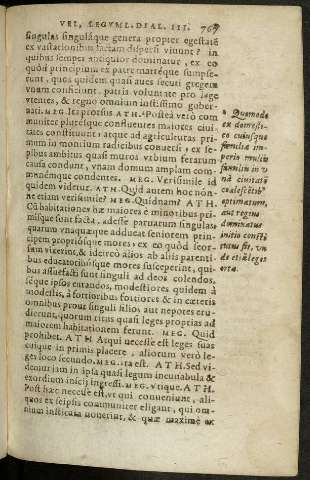 VEL LEGVM. DIAL. III. 767
singulas singulásque genera propter egestatē
ex vastationibus factam dispersi viuunt? in
quibus semper antiquior dominatur, ex eo
quòd principium ex patre matréque sumpse-
runt, quos quidem quasi aues secuti gregem
vnum conficiunt, patriis voluntate pro lege
vtentes, & regno omnium iustissimo guber-
nati. MEG. Ita prorsus. ATH. Postea verò com
muniter plurésque confluentes maiores ciui-
tates constituunt: atque ad agriculturas pri-
mum in montium radicibus conuersi, ex se-
pibus ambitus quasi muros vrbium ferarum
causa condunt, vnam domum amplam com-
munémque condentes. MEG. Verisimile id
quidem videtur. ATH. Quid autem hoc nón-
ne etiam verisimile? MEG. Quidnam? ATH.
Cū habitationes hæ maiores è minoribus pri-
mísque sunt factæ, adesse paruarum singulas
quarum vnaquæque adduceat seniorem prin-
cipem propriósque mores, ex eo quòd seor-
sum vixerint, & idcirco alios ab aliis parenti-
bus educatoribúsque mores susceperint, qui-
bus assuefacti sunt singuli ad deos colendos,
séque ipsos ornandos, modestiores quidem à
modestis, à fortioribus fortiores & in cæteris
omnibus prout singuli filios, aut nepotes eru-
dierunt, quorum ritus quasi leges proprias ad
maiorem habitationem ferunt. MEG. Quid
prohibet. ATH. Atqui necesse est leges suas
cuique in primis placere, aliorum verò le-
ges loco secundo. MEG. Ita est. ATH. Sed vi-
demur iam in ipsa quasi legum incunabula &
exordium inscij ingressi. MEG. Vtique. ATH.
Post hæc necesse est, vt qui conueniunt, ali-
quos ex seipsis communiter eligant, qui om-
nium instituta nouerint, & quæ maximè ex
Quomodo
ex domesti-
co cuiusque
familiæ im-
perio multis
familiis in v
nā ciuitatē
coalescētib9
optimatum,
aut regius
dominatus
initio consti
tutus sit, vn
de etiā leges
ortæ.